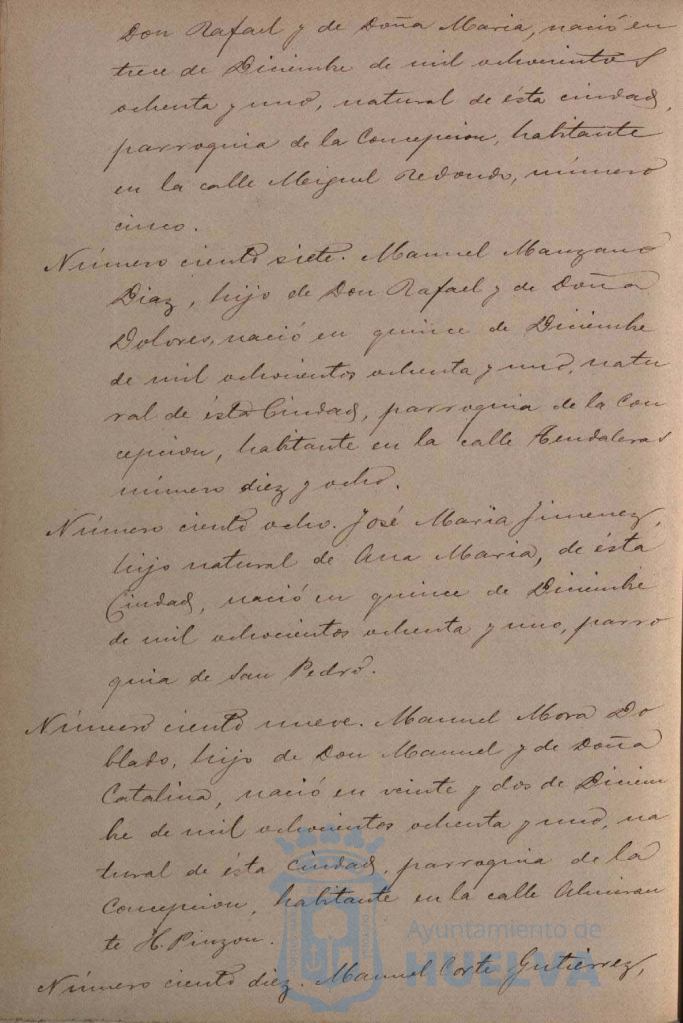 Don Rafael y de Doña Maria, nació en
trece de Diciembre de mil ochocientos
ochenta y uno, natural de ésta ciudad,
parroquia de la Concepcion, habitante
en la calle Miguel Redondo, número
cinco.
Número ciento siete. Manuel Manzano
Diaz, hijo de Don Rafael y de Doña
Dolores, nació en quince de Diciembre
de mil ochocientos ochenta y uno, natu
ral de ésta Ciudad, parroquia de la Con
cepcion, habitante en la calle Tendaleras
número diez y ocho.
Número ciento ocho. José Maria Jimenez,
hijo natural de Ana Maria, de ésta
Ciudad, nació en quince de Diciembre
de mil ochocientos ochenta y uno, parro
quia de San Pedro.
Número ciento nueve. Manuel Mora Do
blado, hijo de Don Manuel y de Doña
Catalina, nació en veinte y dos de Diciem
bre de mil ochocientos ochenta y uno, na
tural de ésta Ciudad, parroquia de la
Concepcion, habitante en la calle Almiran
te H. Pinzon.
Número ciento diez. Manuel Corte Gutiérrez,
Ayuntamiento de
HUELVA